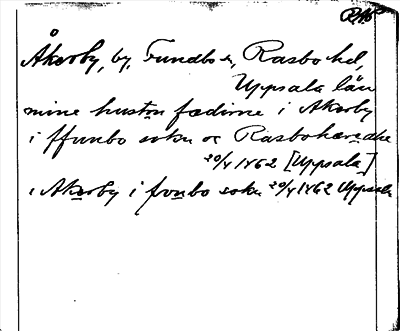 RAP
Åkerby, by, Fundbo sn, Rasbo hd,
Uppsala län
mine hustru fædirne i Akerby
i ffunbo sokn oc Rasbohæredhe
20/4 1462 [Uppsala]
i Akerby i fvnbo sokn 20/4 1462 Uppsala